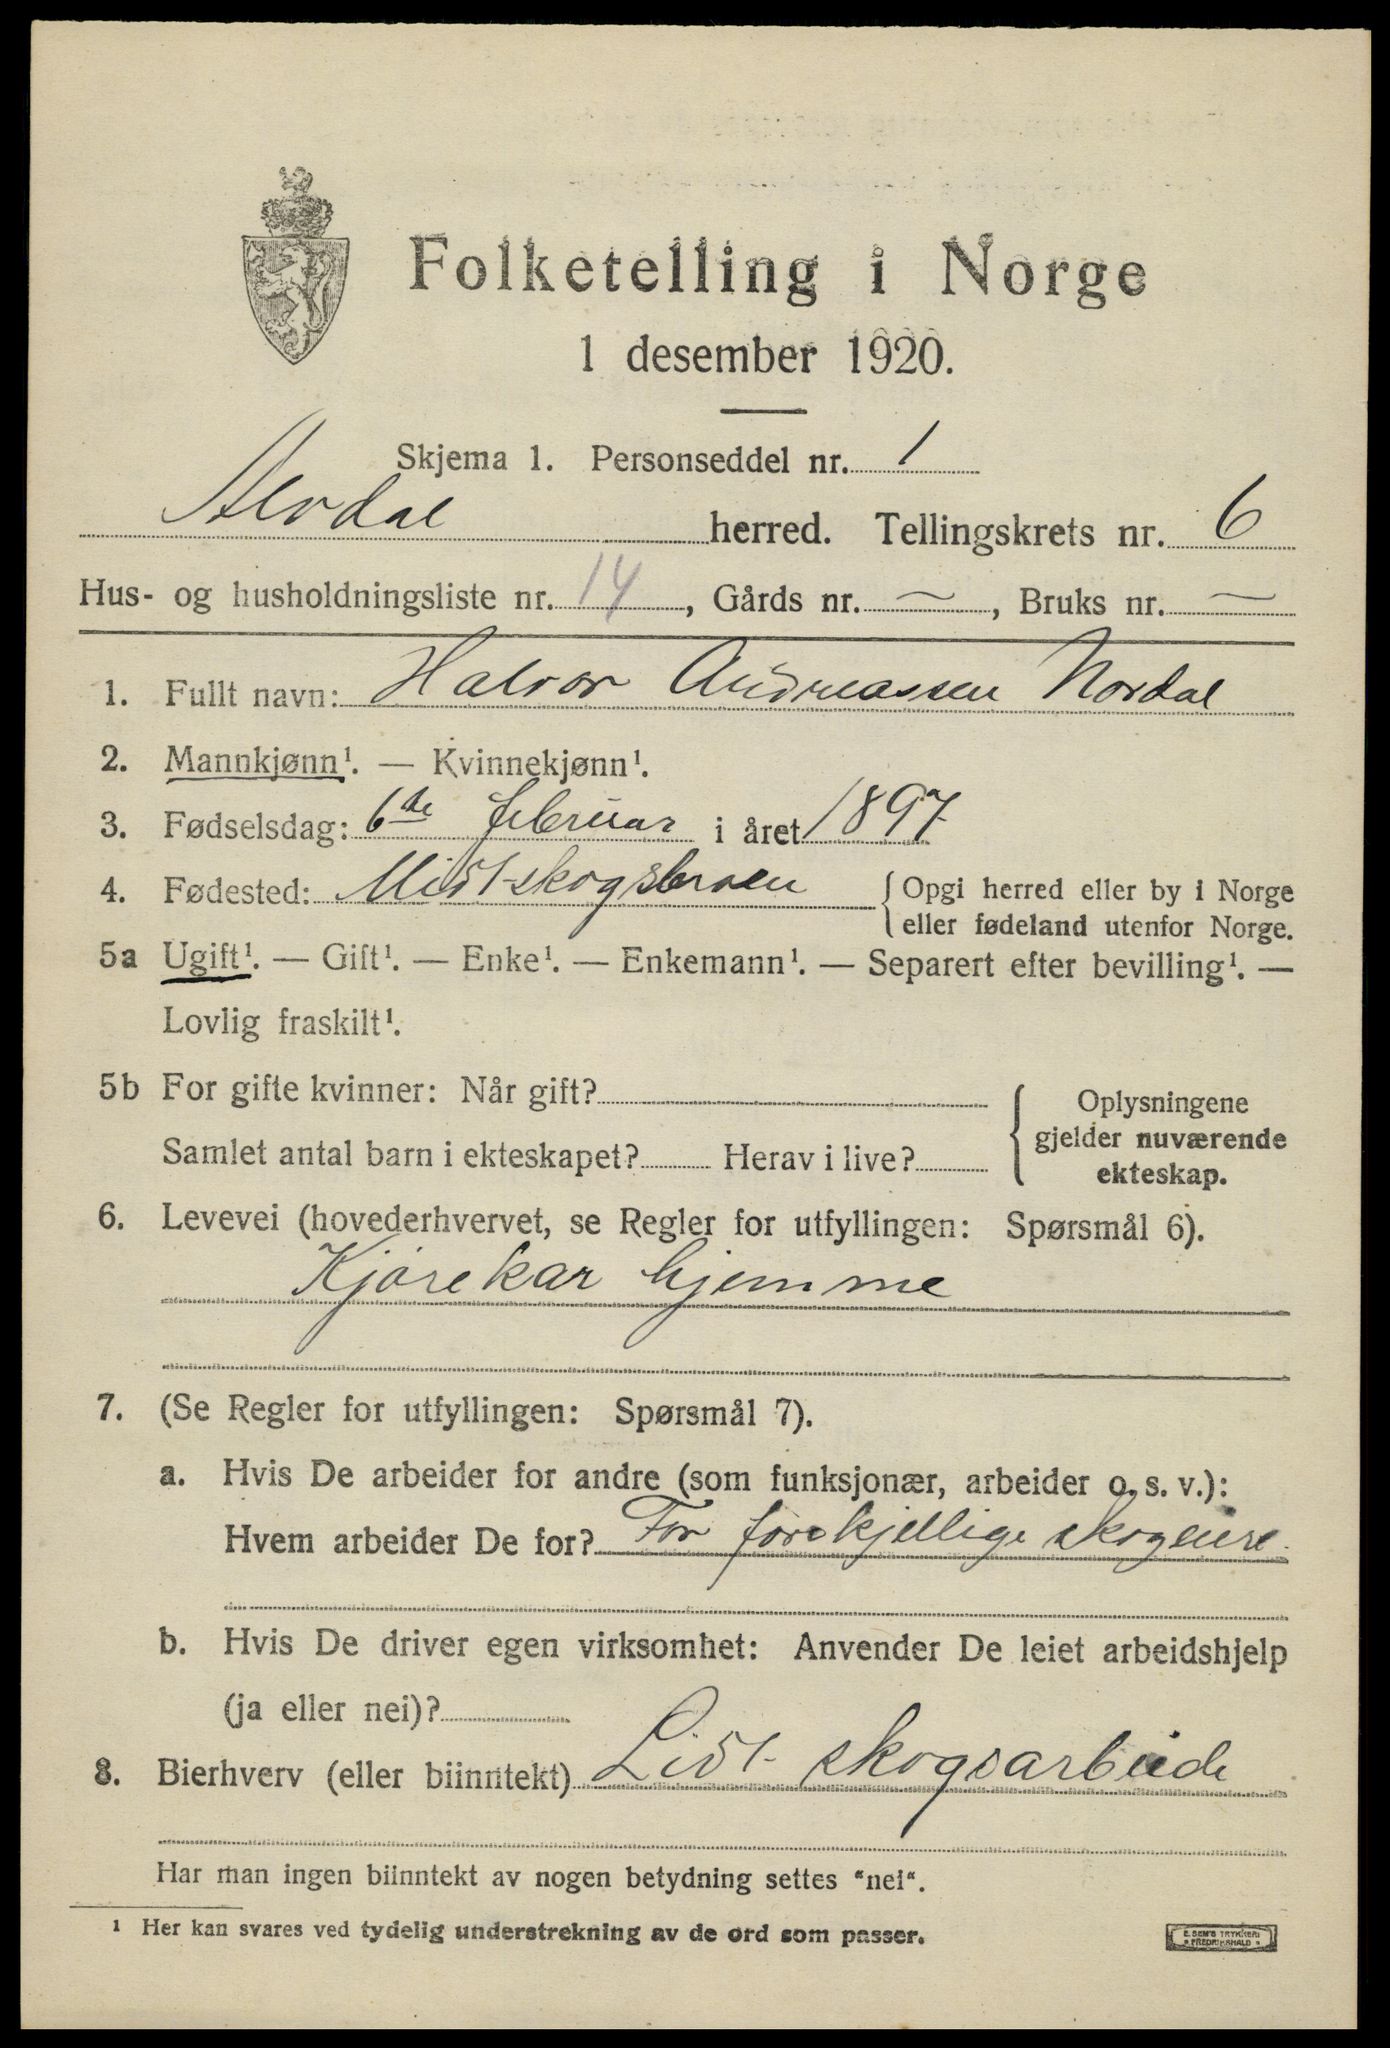 Folketelling i Norge
1 desember 1920.
Skjema 1. Personseddel nr. 1
Alvdal herred. Tellingskrets nr. 6
Hus- og husholdningsliste nr. 14, Gårds nr. —, Bruks nr. —
1. Fullt navn: Halvor Andreassen Nordal
2. Mannkjønn¹. — Kvinnekjønn¹.
3. Fødselsdag: 6de februar i året 1897
4. Fødested: { Opgi herred eller by i Norge
eller fødeland utenfor Norge.
5a Ugift¹. — Gift¹. — Enke¹. — Enkemann¹. — Separert efter bevilling¹. —
Lovlig fraskilt¹.
5b For gifte kvinner: Når gift?
Samlet antal barn i ekteskapet? Herav i live?
{ Oplysningene
gjelder nuværende
ekteskap.
6. Levevei (hovederhvervet, se Regler for utfyllingen: Spørsmål 6).
Kjørekar hjemme
7. (Se Regler for utfyllingen: Spørsmål 7).
a. Hvis De arbeider for andre (som funksjonær, arbeider o. s. v.):
Hvem arbeider De for? For forskjellige skogeiere
b. Hvis De driver egen virksomhet: Anvender De leiet arbeidshjelp
(ja eller nei)?
8. Bierhverv (eller biinntekt) Lidt skogsarbeide
Har man ingen biinntekt av nogen betydning settes "nei".
¹ Her kan svares ved tydelig understrekning av de ord som passer.
E. SEM'S TRYKKERI
FREDRIKSHALD